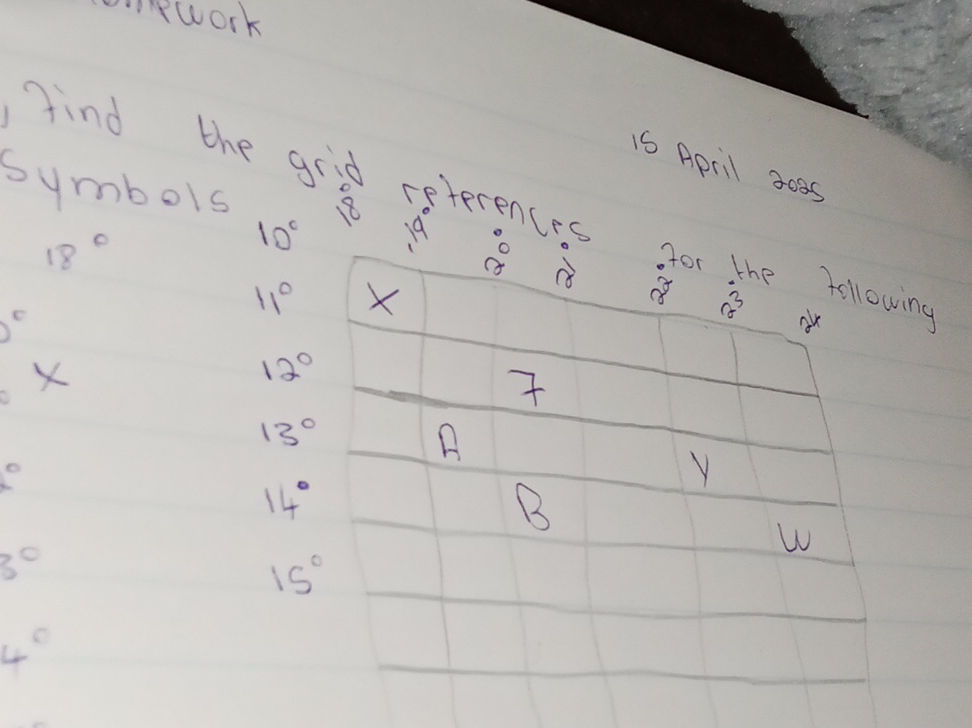 Find the grid references for the following
Symbols
15 April 2025
18° 19° 20° 21° 22° 23° 24
10°
11° X
12° 7
13° A Y
14° B W
15°
18°
X